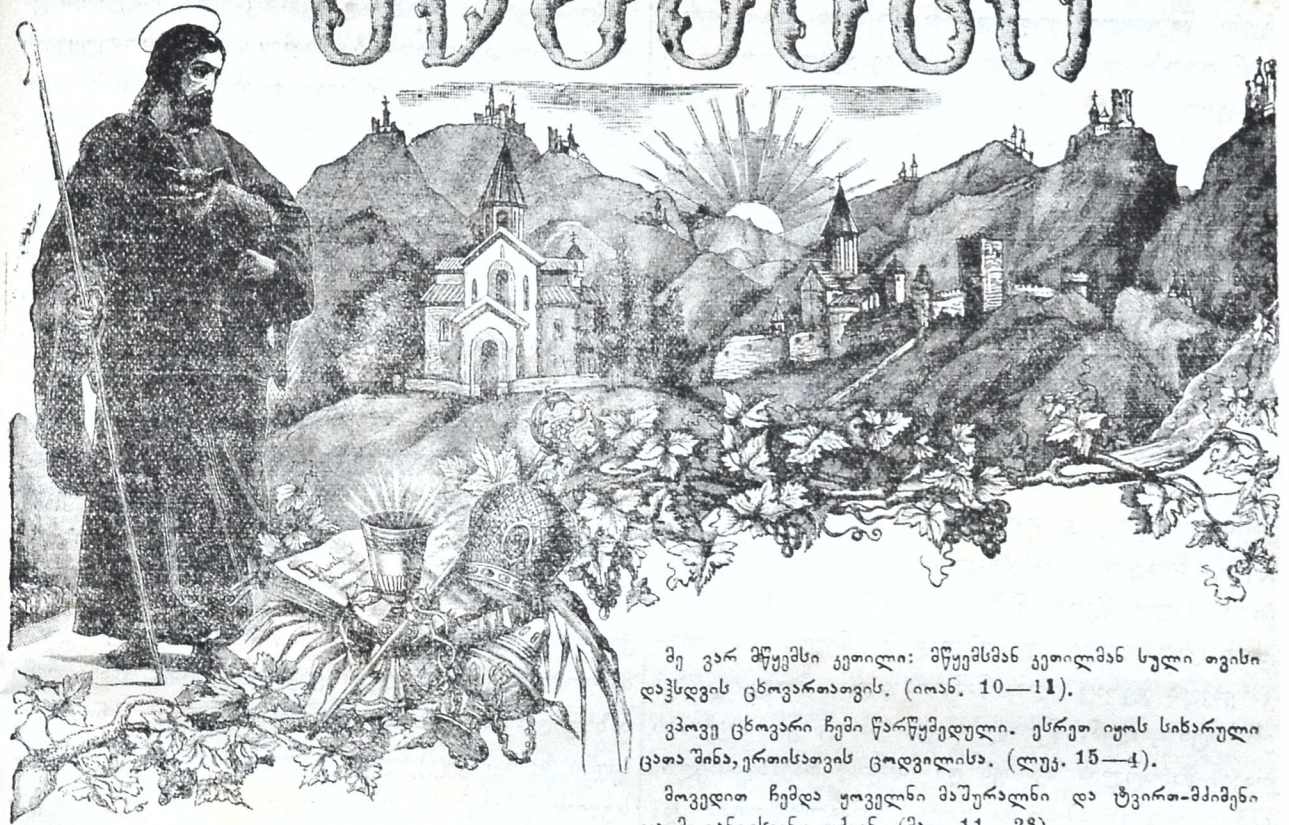 მე ვარ მწყემსი კეთილი: მწყემსმან კეთილმან სული თვისი
დაჰსდვის ცხოვართათვის. (იოან. 10—11).
ვპოვე ცხოვარი ჩემი წარწყმედული. ესრეთ იყოს სიხარული
ცათა შინა, ერთისათვის ცოდვილისა. (ლუკ. 15—4).
მოვედით ჩემდა ყოველნი მაშურალნი და ტვირთ-მძიმენი